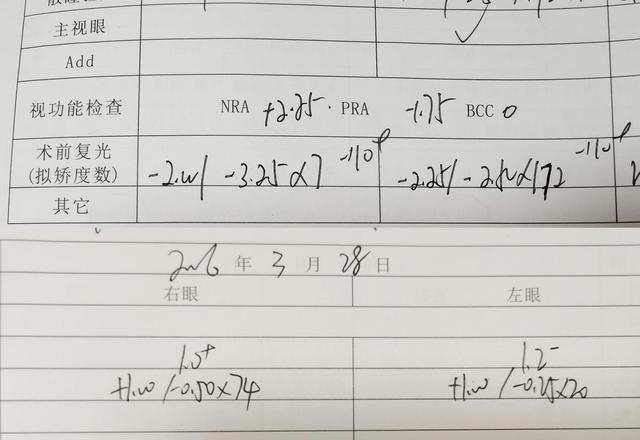 主视眼
Add
视功能检查 NRA +2.25. PRA -1.75 BCC 0
术前复光
(拟矫度数) -2.00/ -3.25×7 -1.0+ -2.25/ -2.50×172 -1.0+
其它
2016 年 3 月 28 日
右眼 左眼
1.0+ 1.2-
+1.00 /-0.50×74 +1.00 /-0.25×20